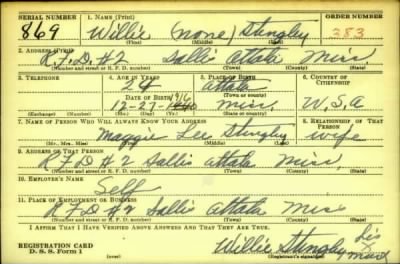 SERIAL NUMBER 1. NAME (Print) ORDER NUMBER
869 Willie (none) Stingley 283
(First) (Middle) (Last)
2. ADDRESS (Print)
R.F.D. #2 Sallis Attala Miss.
(Number and street or R. F. D. number) (Town) (County) (State)
3. TELEPHONE 4. AGE IN YEARS 5. PLACE OF BIRTH 6. COUNTRY OF CITIZENSHIP
24 Attala
DATE OF BIRTH (Town or county)
1916
12-27- Miss U.S.A
(Exchange) (Number) (Mo.) (Day) (Yr.) (State or country)
7. NAME OF PERSON WHO WILL ALWAYS KNOW YOUR ADDRESS 8. RELATIONSHIP OF THAT PERSON
Maggie Lee Stingley wife
(Mr., Mrs., Miss) (First) (Middle) (Last)
9. ADDRESS OF THAT PERSON
R.F.D #2 Sallis Attala Miss.
(Number and street or R. F. D. number) (Town) (County) (State)
10. EMPLOYER'S NAME
Self
11. PLACE OF EMPLOYMENT OR BUSINESS
R.F.D #2 Sallis Attala Miss
(Number and street or R. F. D. number) (Town) (County) (State)
I AFFIRM THAT I HAVE VERIFIED ABOVE ANSWERS AND THAT THEY ARE TRUE.
REGISTRATION CARD
D. S. S. Form 1 Willie Stingley his
(Registrant's signature)